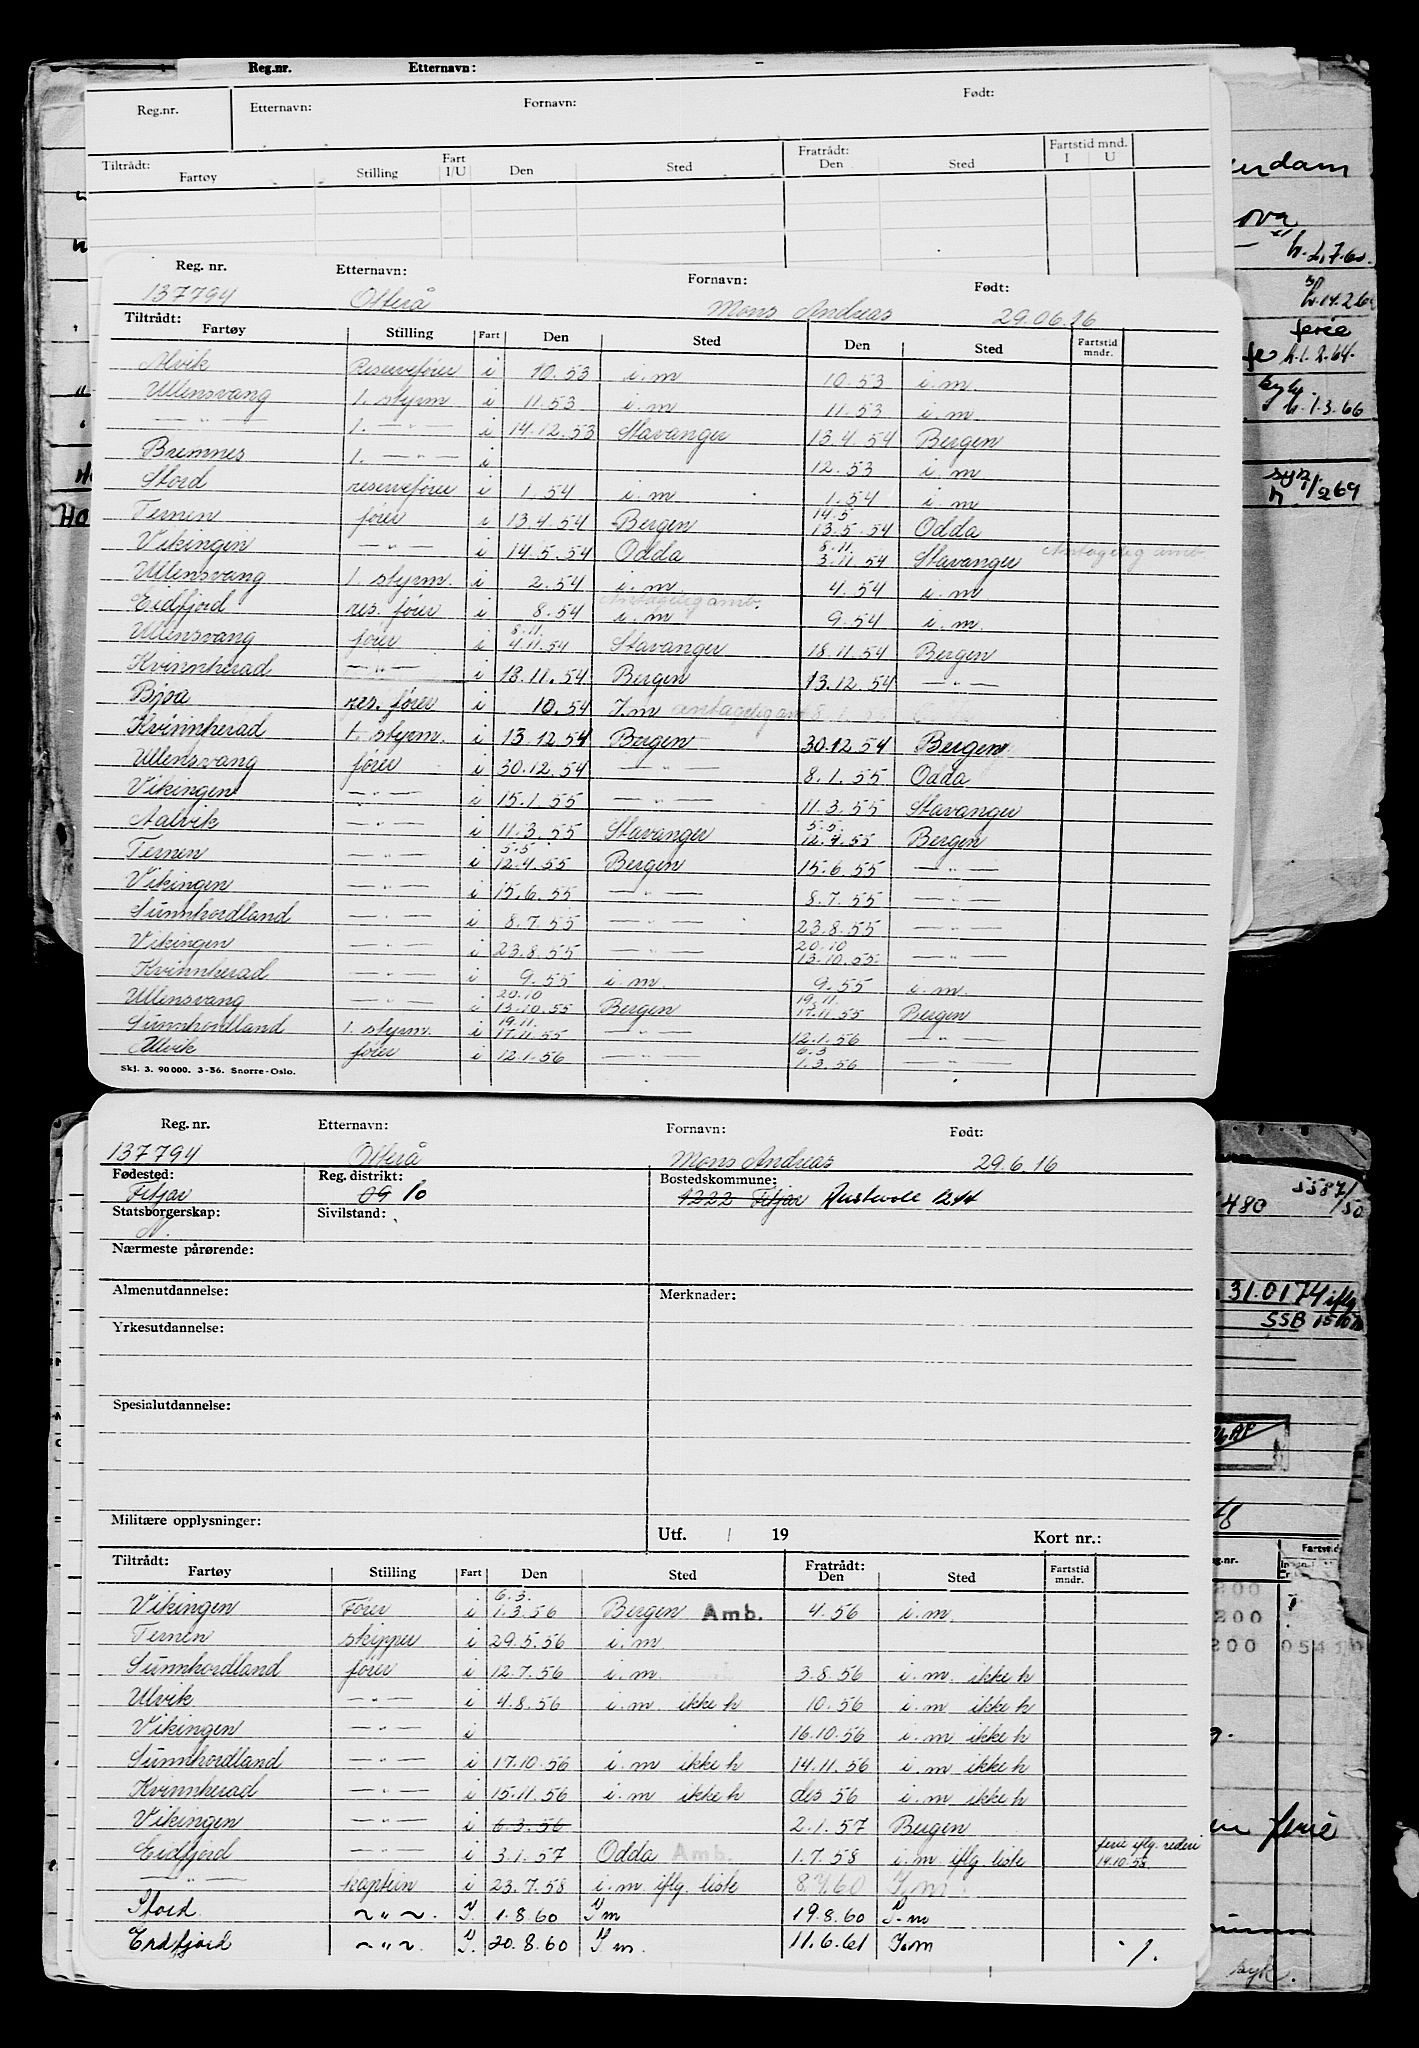 Reg.nr. Etternavn:
Reg.nr. Etternavn: Fornavn: Født:
Tiltrådt: Fartøy Stilling Fart I/U Den Sted Fratrådt: Den Sted Fartstid mnd. I U
Reg. nr. Etternavn: Fornavn: Født:
137794 Otterå Mons Andreas 29.06.16
Tiltrådt: Fartøy Stilling Fart Den Sted Den Sted Fartstid mndr.
Alvik Reservefører i 10.53 i.m 10.53 i.m
Ullensvang 1. styrm i 11.53 i.m 11.53 i.m
— " — 1. — " — i 14.12.53 Stavanger 13.4.54 Bergen
Bremnes 1. — " — i 12.53 i.m
Stord reservefører i 1.54 i.m 1.54 i.m
Ternen fører i 13.4.54 Bergen 14.5 13.5.54 Odda
Vikingen — " — i 14.5.54 Odda 8.11. 3.11.54 Stavanger Antagelig amb.
Ullensvang 1. styrm. i 2.54 i.m 4.54 i.m
Eidfjord res. fører i 8.54 Antagelig amb. i.m 9.54 i.m.
Ullensvang fører i 8.11. 4.11.54 Stavanger 18.11.54 Bergen
Kvinnherad — " — i 18.11.54 Bergen 13.12.54 — " —
Bjoa res. fører i 10.54 I.m antagelig amb
Kvinnherad 1. styrm. i 13.12.54 Bergen 30.12.54 Bergen
Ullensvang fører i 30.12.54 — " — 8.1.55 Odda
Vikingen — " — i 15.1.55 — " — 11.3.55 Stavanger
Aalvik — " — i 11.3.55 Stavanger 5.5. 12.4.55 Bergen
Ternen — " — i 5.5 12.4.55 Bergen 15.6.55 — " —
Vikingen — " — i 15.6.55 — " — 8.7.55 — " —
Sunnhordland — " — i 8.7.55 — " — 23.8.55 — " —
Vikingen — " — i 23.8.55 — " — 20.10 13.10.55 — " —
Kvinnherad — " — i 9.55 i.m. 9.55 i.m.
Ullensvang — " — i 20.10 13.10.55 Bergen 19.11. 17.11.55 Bergen
Sunnhordland 1. styrm. i 19.11. 17.11.55 — " — 12.1.56 — " —
Alvik fører i 12.1.56 — " — 6.3 1.3.56 — " —
Skj. 3. 90000. 3-56. Snorre-Oslo.
Reg. nr. Etternavn: Fornavn: Født:
137794 Otterå Mons Andreas 29.6.16
Fødested: Reg. distrikt: Bostedskommune:
Fitjar 09 10 1222 Fitjar Austevoll 1244
Statsborgerskap: Sivilstand:
N.
Nærmeste pårørende:
Almenutdannelse: Merknader:
Yrkesutdannelse:
Spesialutdannelse:
Militære opplysninger: Utf. / 19 Kort nr.:
Tiltrådt: Fartøy Stilling Fart Den Sted Fratrådt: Den Sted Fartstid mndr.
Vikingen Fører i 6.3. 1.3.56 Bergen Amb. 4.56 i.m.
Ternen skipper i 29.5.56 i.m
Sunnhordland fører i 12.7.56 i.m. 3.8.56 i.m. ikke h
Ulvik — " — i 4.8.56 i.m ikke h 10.56 i.m ikke h
Vikingen — " — i 16.10.56 i.m ikke h
Sunnhordland — " — i 17.10.56 i.m ikke h 14.11.56 i.m ikke h
Kvinnherad — " — i 15.11.56 i.m ikke h des 56 i.m ikke h
Vikingen — " — i 6.3.56 2.1.57 Bergen
Eidfjord — " — i 3.1.57 Odda Amb. 1.7.58 i.m. iflg. liste ferie iflg. rederi 14.10.58.
— " — kaptein i 23.7.58 i.m. iflg. liste 8.7.60 I.m
Stord. ~ " ~ . I. 1.8.60 I m 19.8.60 I.m
Eidfjord ~ " ~ . I. 20.8.60 I m. 11.6.61 I.m
h.1.7.60.
ferie
h.1.2.64.
h.1.3.66
480
5587/50
31.0174 iflg
SSB
Fartstid
200
200
200 054
ferie